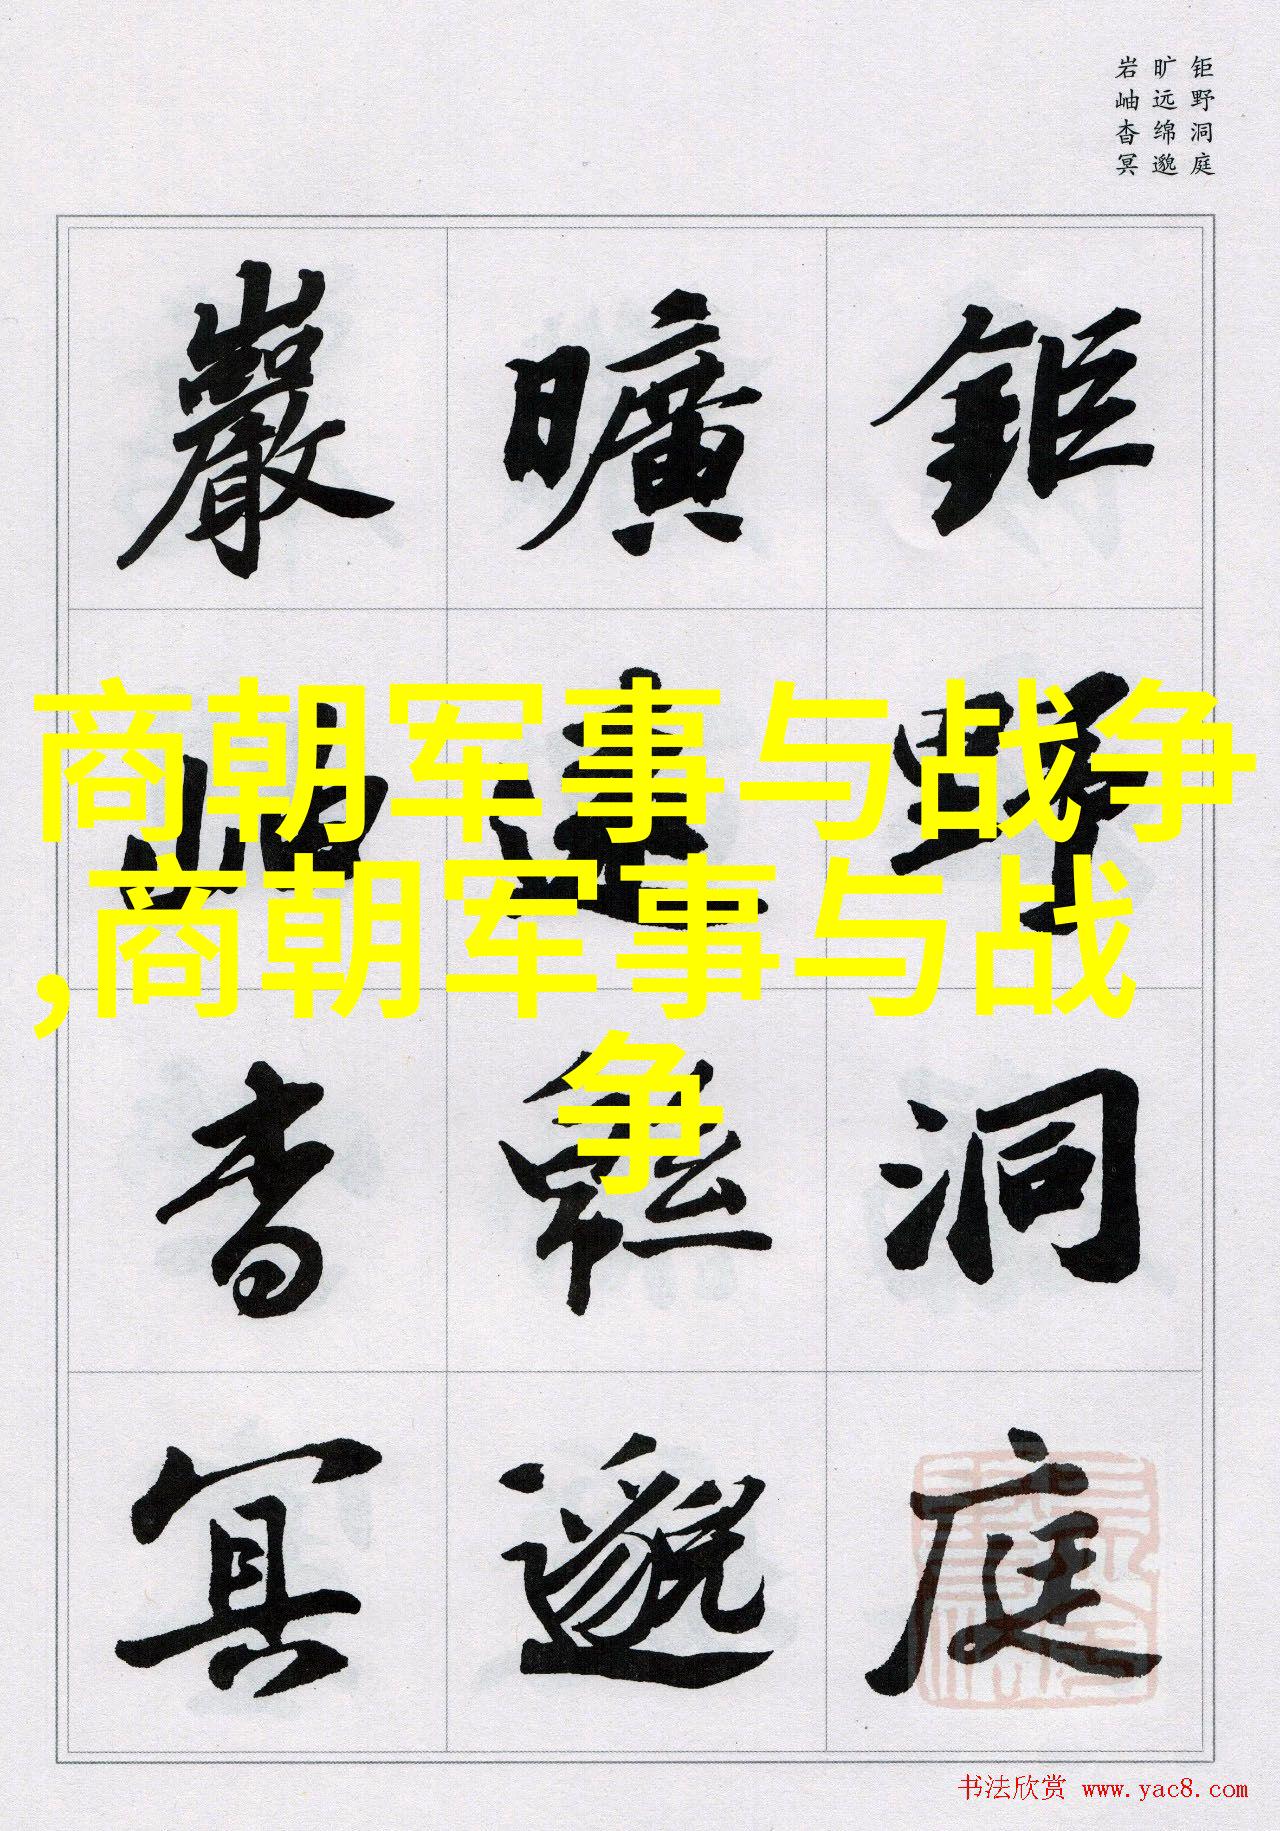 钜野洞庭
旷远绵邈
岩岫杳冥
鉅野洞庭
曠遠緜邈
巖岫杳冥
商朝军事与战争
,商朝军事与战
争
书法欣赏 www.yac8.com